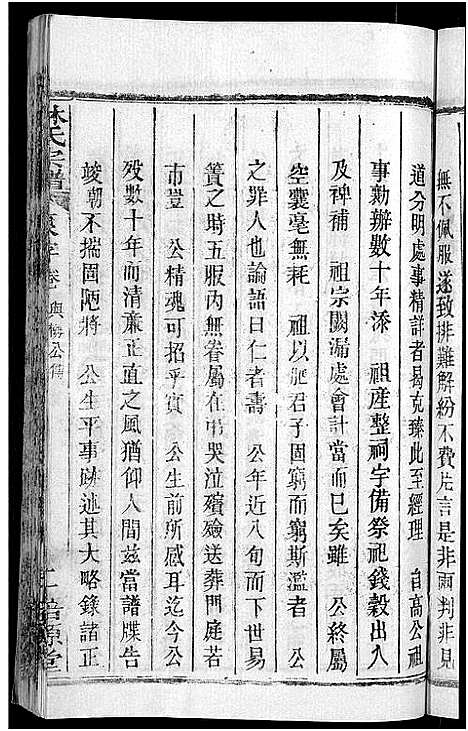 無不佩服遂致排難解紛不費片言是非兩判非見
道分明處事精詳者曷克臻此至經理 自高公祖
事勷辦數十年添 祖產整祠宇備祭祀錢穀出入
及裨補 祖宗闕漏處會計當而已矣雖 公終屬
空囊毫無耗 祖以肥君子固窮而窮斯濫者 公
之罪人也論語曰仁者壽 公年近八旬而下世易
簀之時五服內無眷屬在弔哭泣殯殮送葬門庭若
市豈 公精魂可招乎實 公生前所感耳迄今公
歿數十年而清廉正直之風猶仰人間茲當譜牒告
竣朝不揣固陋將 公生平事跡述其大略錄諸正
林氏宗譜 卷 公傳